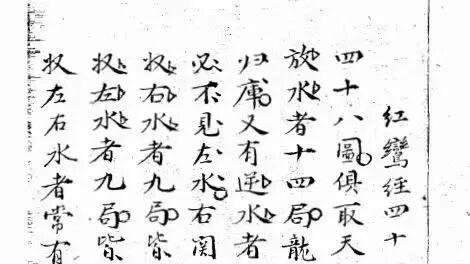 红鸞經四十
四十八圖俱取天
放水者十四局龍
归庫又有逆水者
必不見左水右関
収右水者九局皆
収左水者九局皆
収左右水者常有